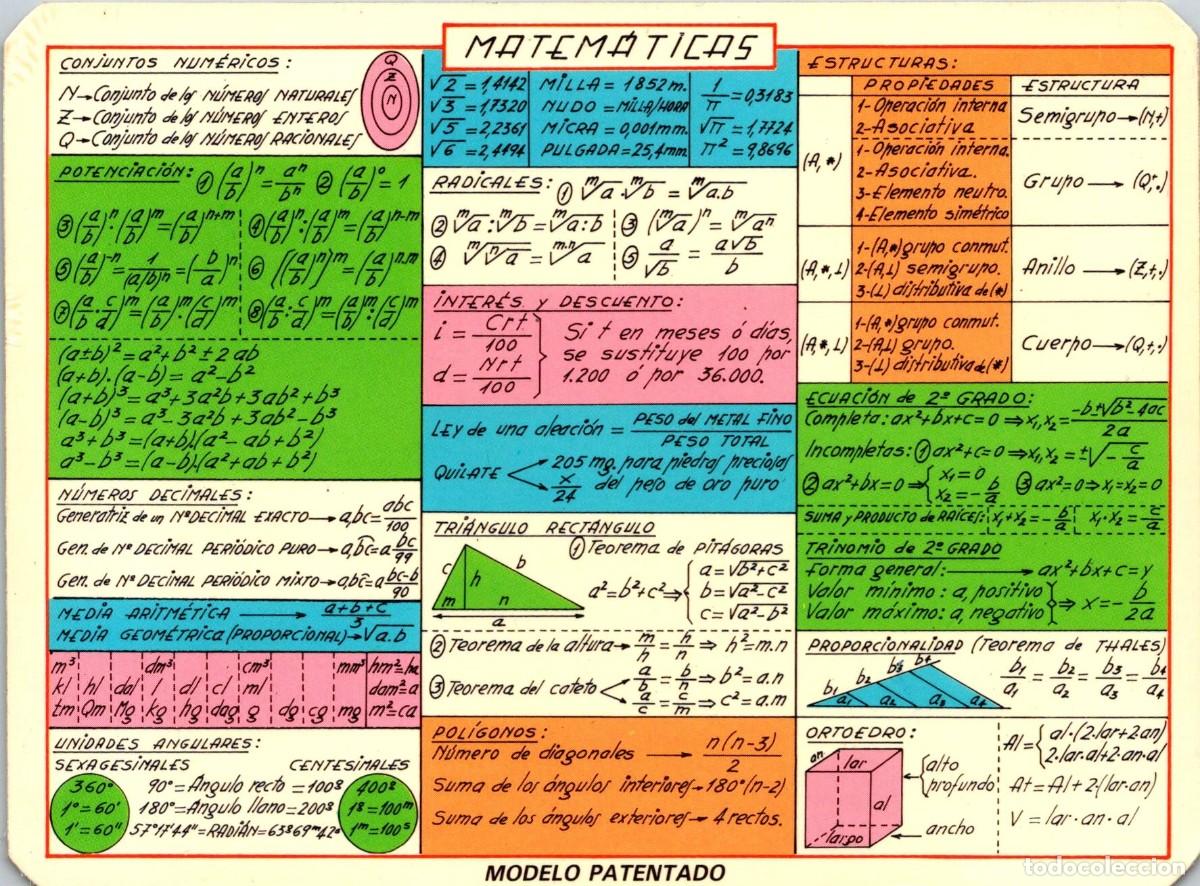 MATEMÁTICAS
CONJUNTOS NUMÉRICOS:
N→Conjunto de los NÚMEROS NATURALES
Z→Conjunto de los NÚMEROS ENTEROS
Q→Conjunto de los NÚMEROS RACIONALES
Q
Z
N
POTENCIACIÓN: ① (a/b)ⁿ = aⁿ/bⁿ ② (a/b)⁰ = 1
③ (a/b)ⁿ·(a/b)ᵐ=(a/b)ⁿ⁺ᵐ ④ (a/b)ⁿ:(a/b)ᵐ=(a/b)ⁿ⁻ᵐ
⑤ (a/b)⁻ⁿ=1/(a/b)ⁿ=(b/a)ⁿ ⑥ [(a/b)ⁿ]ᵐ=(a/b)ⁿ·ᵐ
⑦ (a/b·c/d)ᵐ=(a/b)ᵐ·(c/d)ᵐ ⑧ (a/b:c/d)ᵐ=(a/b)ᵐ:(c/d)ᵐ
(a±b)²=a²+b²±2ab
(a+b).(a-b)=a²-b²
(a+b)³=a³+3a²b+3ab²+b³
(a-b)³=a³-3a²b+3ab²-b³
a³+b³=(a+b).(a²-ab+b²)
a³-b³=(a-b).(a²+ab+b²)
NÚMEROS DECIMALES:
Generatriz de un Nº DECIMAL EXACTO→a,bc=abc/100
Gen. de Nº DECIMAL PERIÓDICO PURO→a,bc=a bc/99
Gen. de Nº DECIMAL PERIÓDICO MIXTO→a,bc=a bc-b/90
MEDIA ARITMÉTICA → a+b+c/3
MEDIA GEOMÉTRICA (PROPORCIONAL)→√a.b
m³ dm³ cm³ mm³ hm²=ha
kl hl dal l dl cl ml dam²=a
tm Qm Mg kg hg dag g dg cg mg m²=ca
UNIDADES ANGULARES:
SEXAGESIMALES CENTESIMALES
360° 90°=Angulo recto=100g 400g
1°=60' 180°=Angulo llano=200g 1g=100m
1'=60" 57°17'44"=RADIÁN=63g69m42s 1m=100s
√2=1,4142 MILLA=1852m. 1/π=0,3183
√3=1,7320 NUDO=MILLA/HORA
√5=2,2361 MICRA=0,001mm. √π=1,7724
√6=2,4494 PULGADA=25,4mm. π²=9,8696
RADICALES: ① ᵐ√a·ᵐ√b=ᵐ√a.b
② ᵐ√a:ᵐ√b=ᵐ√a:b ③ (ᵐ√a)ⁿ=ᵐ√aⁿ
④ ᵐ√ⁿ√a=ᵐ·ⁿ√a ⑤ a/√b=a√b/b
INTERÉS y DESCUENTO:
i=Crt/100 Si t en meses ó días,
se sustituye 100 por
d=Nrt/100 1.200 ó por 36.000.
LEY de una aleación=PESO del METAL FINO/PESO TOTAL
QUILATE 205 mg. para piedras preciosas
x/24 del peso de oro puro
TRIÁNGULO RECTÁNGULO
① Teorema de PITÁGORAS
c h b m n a
a²=b²+c²⇒ a=√b²+c²
b=√a²-c²
c=√a²-b²
② Teorema de la altura→m/h=h/n⇒h²=m.n
③ Teorema del cateto a/b=b/n⇒b²=a.n
a/c=c/m⇒c²=a.m
POLÍGONOS:
Número de diagonales → n(n-3)/2
Suma de los ángulos interiores→180°(n-2)
Suma de los ángulos exteriores→4 rectos.
ESTRUCTURAS:
PROPIEDADES ESTRUCTURA
1-Operación interna
2-Asociativa
Semigrupo→(N,+)
(A,*)
1-Operación interna.
2-Asociativa.
3-Elemento neutro.
4-Elemento simétrico
Grupo→(Q⁺,·)
(A,*,⊥)
1-(A,*)grupo conmut.
2-(A,⊥) semigrupo.
3-(⊥) distributiva de(*)
Anillo→(Z,+,·)
(A,*,⊥)
1-(A,*)grupo conmut.
2-(A,⊥) grupo.
3-(⊥) distributiva de(*)
Cuerpo→(Q,+,·)
ECUACIÓN DE 2º GRADO:
Completa: ax²+bx+c=0⇒x₁,x₂=-b±√b²-4ac/2a
Incompletas: ① ax²+c=0⇒x₁,x₂=±√-c/a
② ax²+bx=0⇒ x₁=0 x₂=-b/a ③ ax²=0⇒x₁=x₂=0
SUMA y PRODUCTO de RAÍCES: x₁+x₂=-b/a x₁·x₂=c/a
TRINOMIO de 2º GRADO
Forma general:→ax²+bx+c=y
Valor mínimo: a, positivo
Valor máximo: a, negativo ⇒ x=-b/2a
PROPORCIONALIDAD (Teorema de THALES)
b₁ b₂ b₃ b₄
a₁ a₂ a₃ a₄
b₁/a₁=b₂/a₂=b₃/a₃=b₄/a₄
ORTOEDRO:
an lar al largo
alto
profundo
ancho
Al= al·(2·lar+2·an)
2·lar·al+2·an·al
At=Al+2·(lar·an)
V=lar·an·al
MODELO PATENTADO
todocoleccion